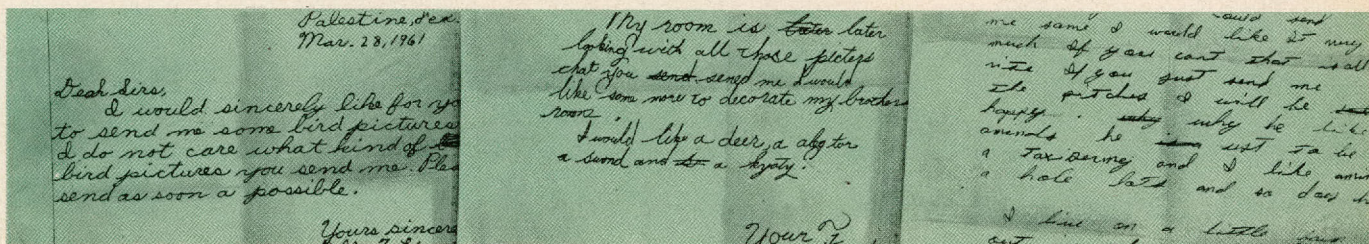 Palestine, Tex.
Mar. 28, 1961
Dear Sirs,
I would sincerely like for yo
to send me some bird pictures
I do not care what kind of
bird pictures you send me. Plea
send as soon a possible.
Yours sincere
My room is later
looking with all those picters
that you send sened me I would
like som more to decorate my brothers
room.
I would like a deer, a aligtor
a and a kyoty.
Your
send
me some I would like it very
much If you cant that is all
rite If you just send me
the pitches I will be
happy. why why he like
amends he ust to be
a Taxidermey and I like
a hole lots and so does h
I live on a little
out